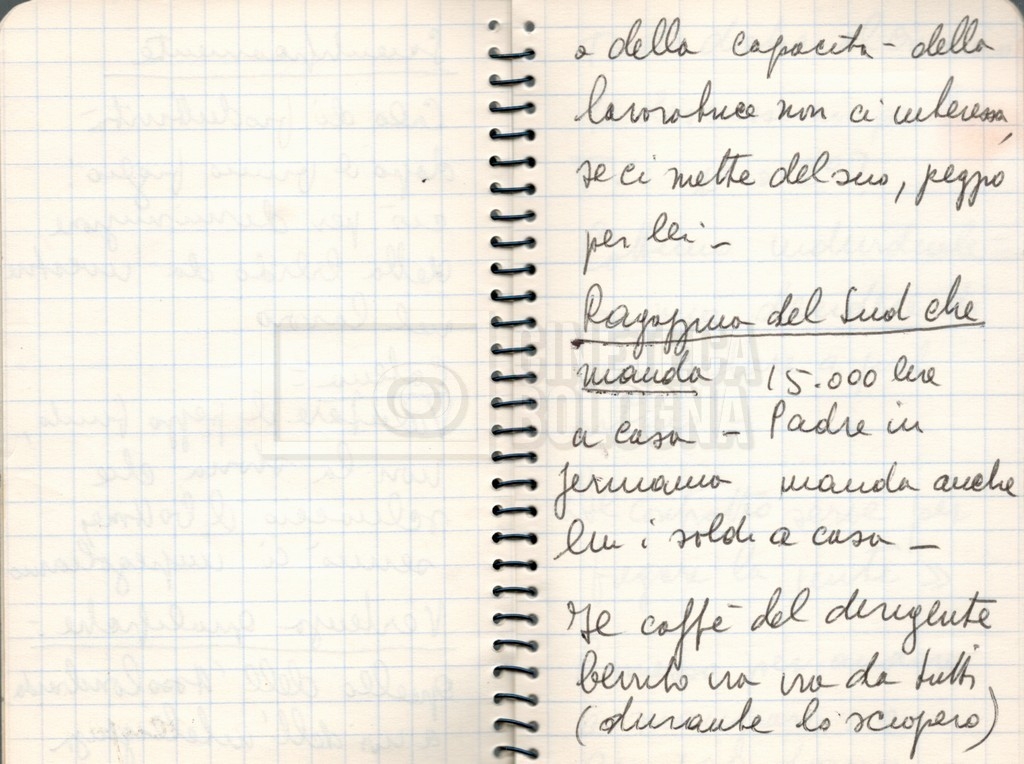 o della capacità - della
lavoratrice non ci interessa,
se ci mette del suo, peggio
per lei -
Ragazzina del Sud che
manda 15.000 lire
a casa - Padre in
Germania manda anche
lui i soldi a casa -
Il caffè del dirigente
bevuto via via da tutti
(durante lo sciopero)
CINETECA
BOLOGNA